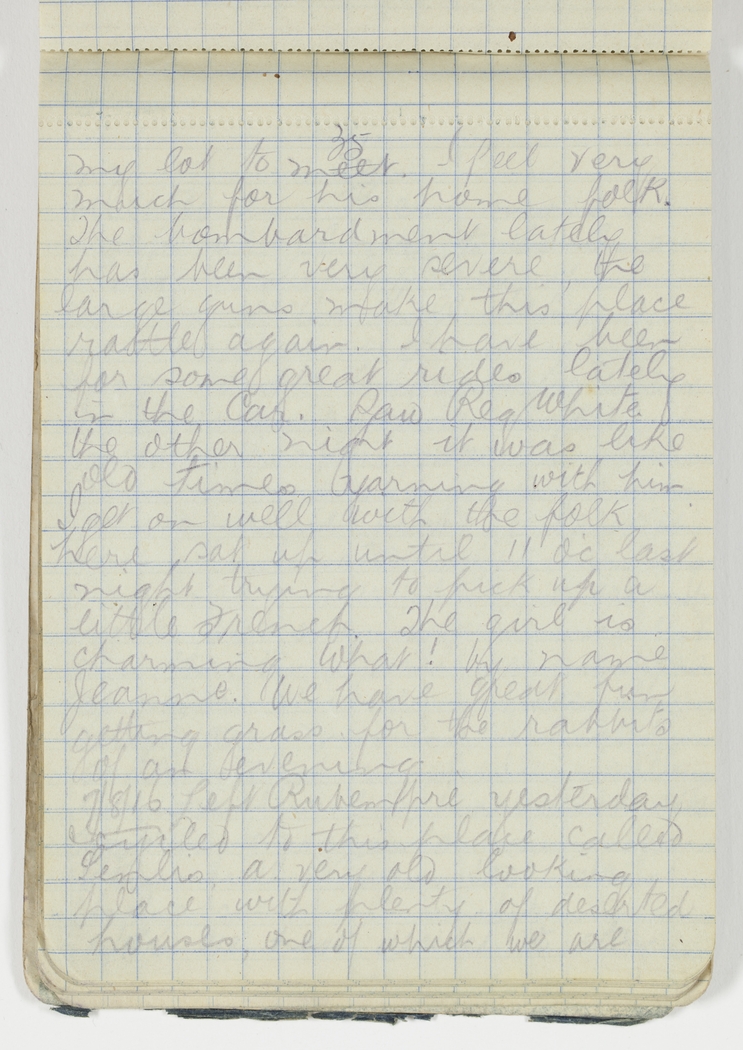 35
my lot to meet. I feel very
much for his home folk.
The bombardment lately
has been very severe, the
large guns make this place
rattle again. I have been
for some great rides lately
in the Car. Saw Reg White
the other night it was like
old times yarning with him
I get on well with the folk
here, sat up until 11 oc last
night trying to pick up a
little French. The girl is
charming what! by name
Jeanne. We have great fun
getting grass for the rabbits
of an evening
7/8/16 Left Rubempre yesterday
to this place called
Senlis a very old looking
place with plenty of deserted
houses, one of which we are